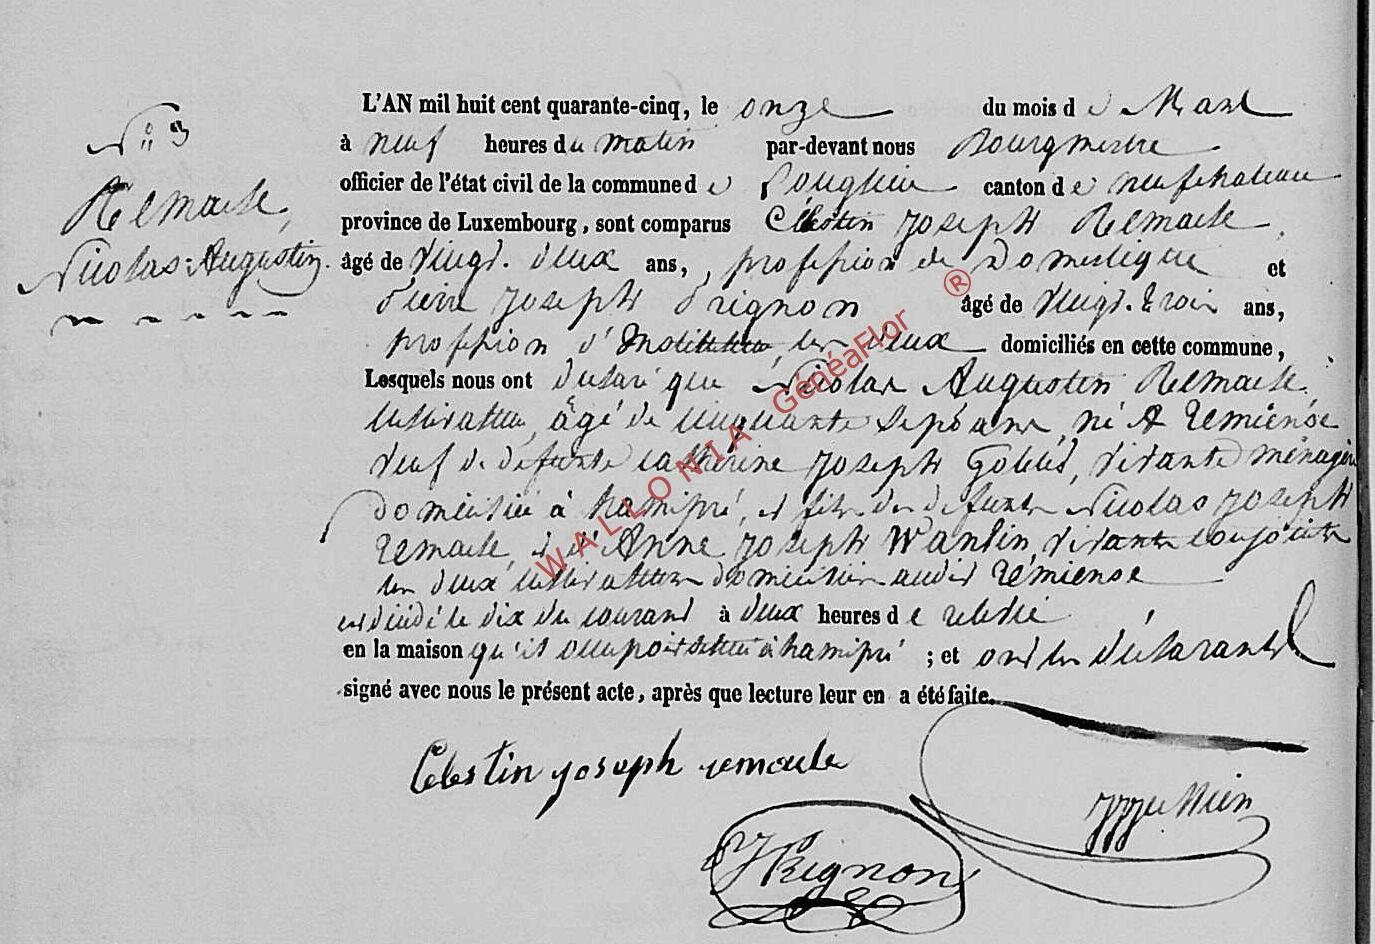 N° 3
Remacle,
Nicolas-Augustin.
L'AN mil huit cent quarante-cinq, le onze du mois de Mars
à neuf heures du matin par-devant nous Bourgmestre
officier de l'état civil de la commune de canton de neufchateau
province de Luxembourg, sont comparus Célestin Joseph Remacle,
âgé de vingt-deux ans, profession de Domestique et
Pierre Joseph Prignon âgé de vingt-trois ans,
profession d'Instituteur, les deux domiciliés en cette commune,
Lesquels nous ont déclaré que Nicolas Augustin Remacle,
cultivateur, âgé de cinquante sept ans, né à
veuf de défunte catherine Joseph vivante ménagère
domicilié à hamipré, et fils des défunts Nicolas Joseph
remacle, et d'Anne Joseph Wanlin, vivants conjoints
les deux cultivateurs domiciliés audit
est décédé le dix du courant à deux heures de relevée
en la maison qu'il occupoit située à hamipré ; et ont les déclarants
signé avec nous le présent acte, après que lecture leur en a été faite.
Célestin joseph remacle
Prignon
WALLONIA GénéaFlor ®